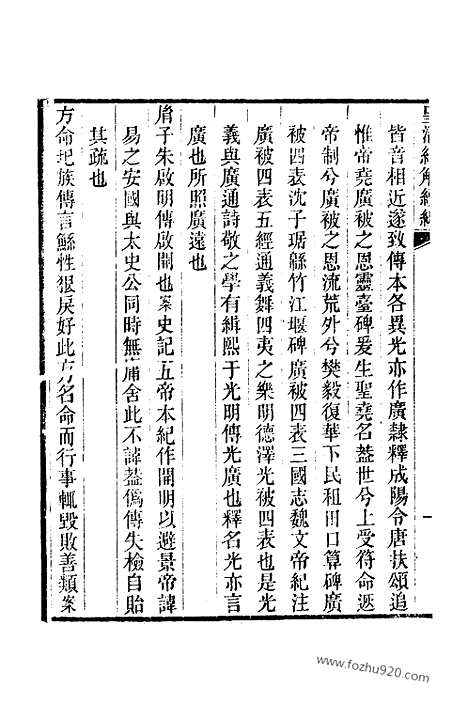 皇清經解續編
皆音相近遂致傳本各異光亦作廣隷釋成陽令唐扶頌追
惟帝堯廣被之恩靈臺碑爰生聖堯名葢世兮上受符命
帝制兮廣被之恩流荒外兮樊毅復華下民租田口算碑廣
被四表沈子琚緜竹江堰碑廣被四表三國志魏文帝紀注
廣被四表五經通義舞四夷之樂明德澤光被四表也是光
義與廣通詩敬之學有緝熙于光明傳光廣也釋名光亦言
廣也所照廣遠也
胤子朱啟明傳啟開也案史記五帝本紀作開明以避景帝諱
易之安國與太史公同時無庸舍此不諱葢僞傳失檢自貽
其疏也
方命圮族傳言鯀性狠戾好此方名命而行事輒毀敗善類案
www.fozhu920.com